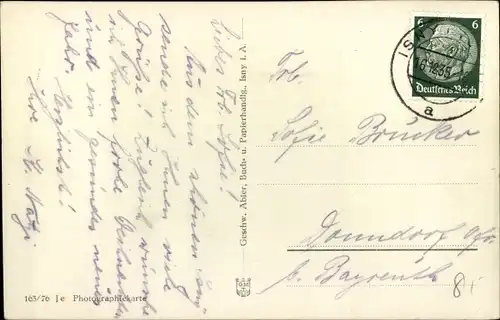 Liebes Frl. Sofie!
Aus dem schönen Isny
sende ich Ihnen viele
Grüße! Zugleich wünsche
ich Ihnen frohe Weihnachten
und ein gesundes neues
Jahr. Herzlichst!
Ihre
Geschw. Abler, Buch- u. Papierhandlg., Isny i. A.
163/76 Je Photographiekarte
6 6
Deutsches Reich
ISNY
a
Frl.
Sofie Brücker
Donndorf Ofr.
b. Bayreuth